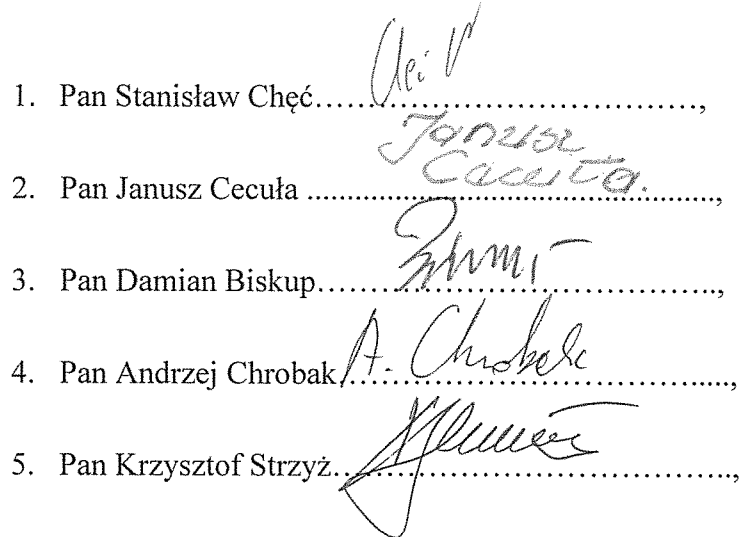 1. Pan Stanisław Chęć……………………………………,
Janusz
Cecuła.
2. Pan Janusz Cecuła ..................................................,
3. Pan Damian Biskup……………………………………..,
4. Pan Andrzej Chrobak A. Chrobak…………………………………....,
5. Pan Krzysztof Strzyż……………………………………..,